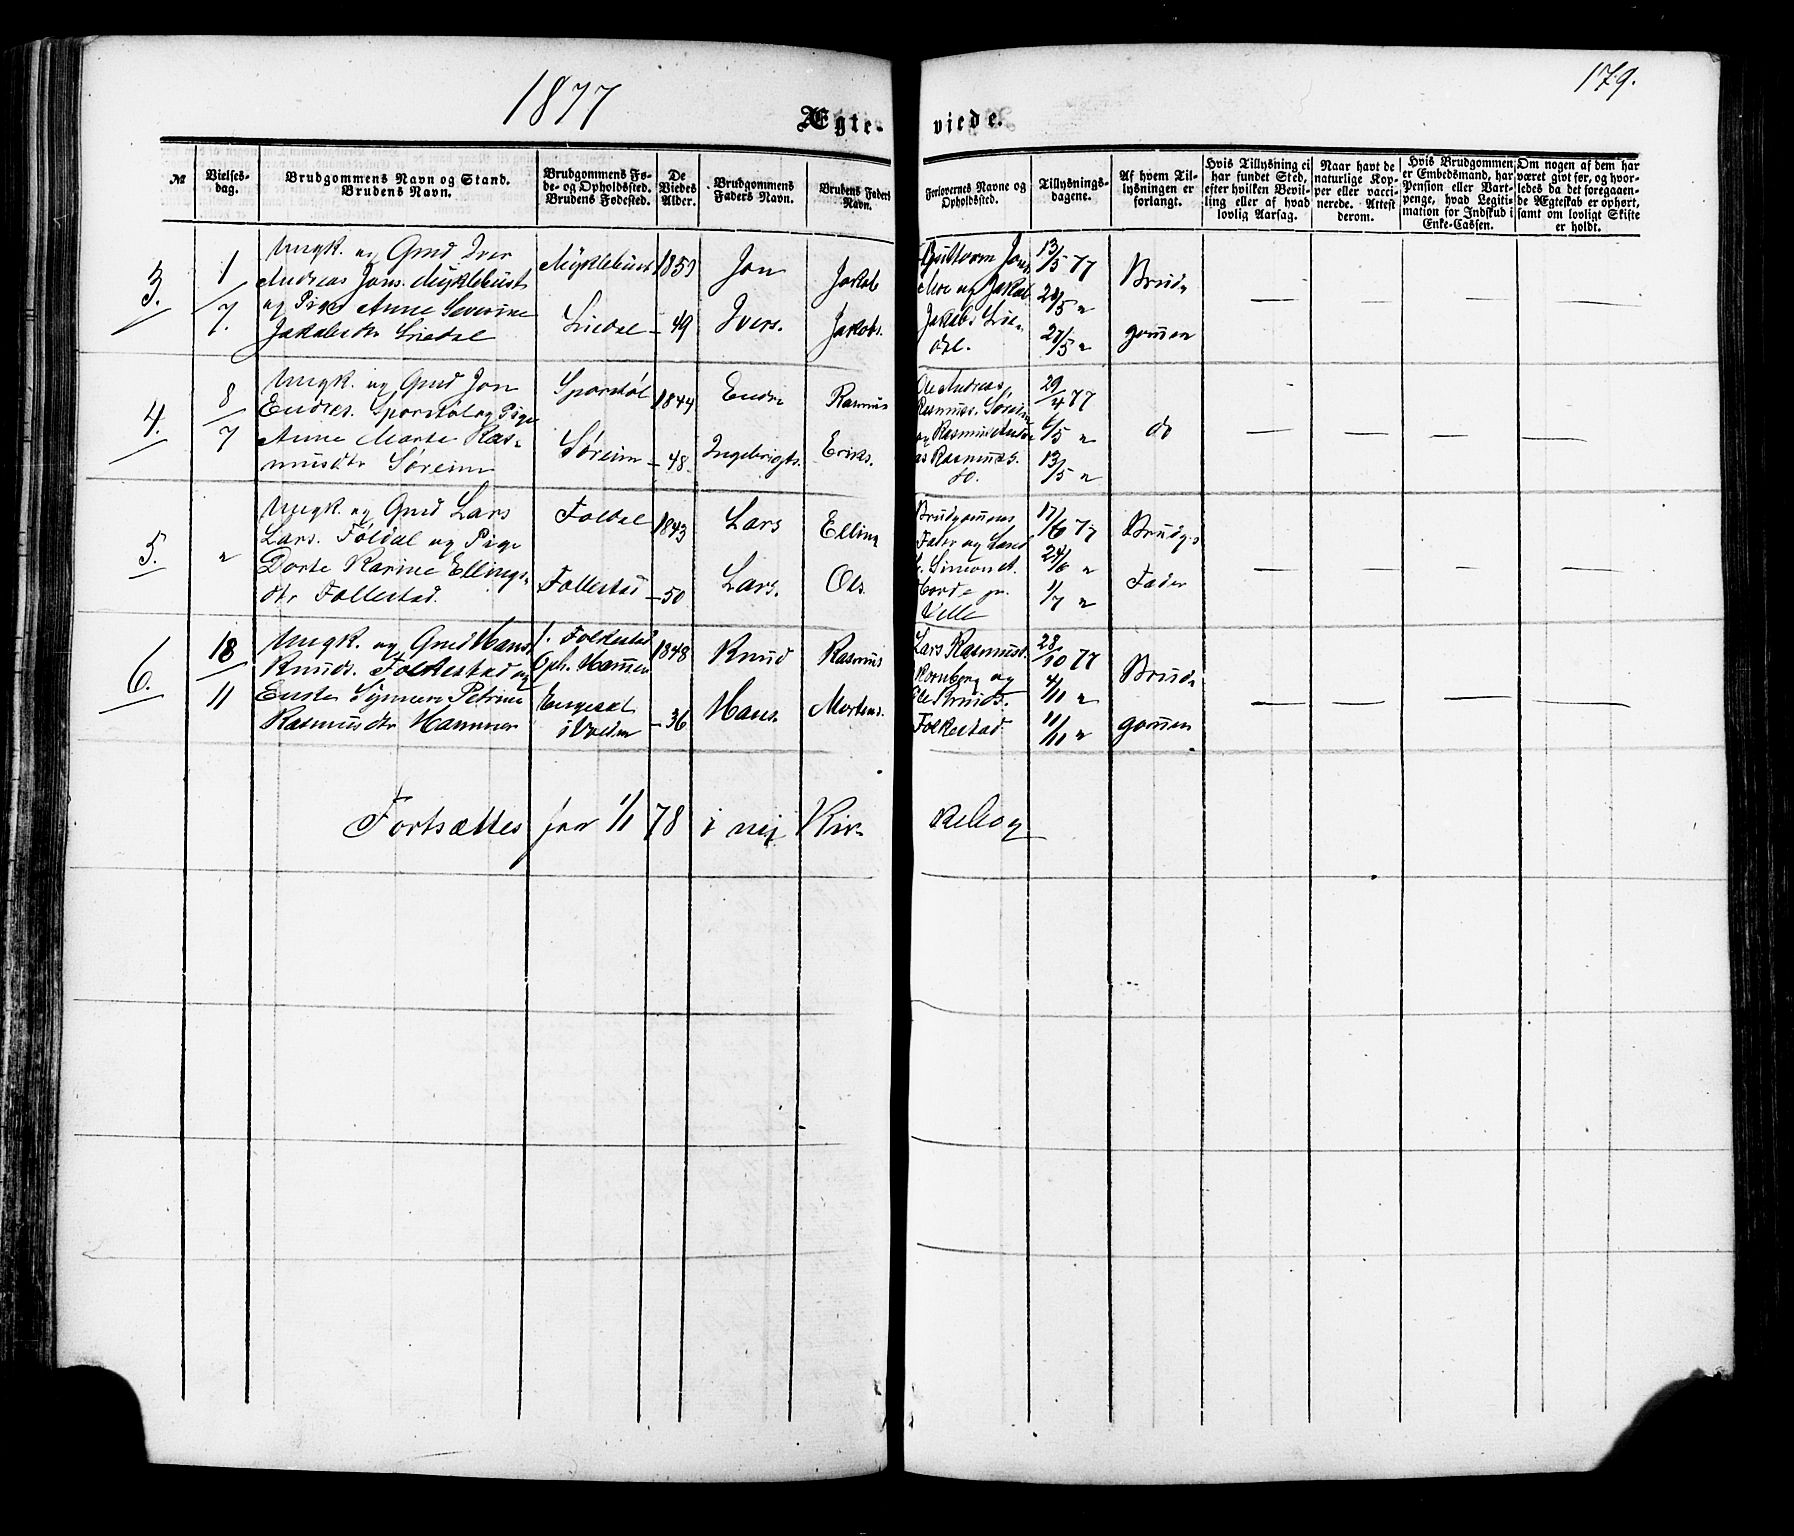 1877
179.
Ægte- viede.
№
Vielses-
dag.
Brudgommens Navn og Stand.
Brudens Navn.
Brudgommens Fø-
de- og Opholdssted.
Brudens Fødested.
De
Viedes
Alder.
Brudgommens
Faders Navn.
Brudens Faders
Navn.
Forlovernes Navne og
Opholdssted.
Tillysnings-
dagene.
Af hvem Til-
lysningen er
forlangt.
Hvis Tillysning ei
har fundet Sted,
efter hvilken Bevil-
ling eller af hvad
lovlig Aarsag.
Naar havt de
naturlige Kop-
per eller vacci-
nerede. Attest
derom.
Hvis Brudgommen
er Embedsmand, har
Pension eller Vart-
penge, hvad Legiti-
mation for Indskud i
Enke-Cassen.
Om nogen af dem har
været givt før, og hvor-
ledes da det foregaaen-
de Ægteskab er ophørt,
samt om lovligt Skifte
er holdt.
3.
1/7.
Ungk. og Gmd Iver
Andreas Jons. Myklebust
og Pige Anne Severine
Jakobsdtr Liedal
Myklebust
Liedal
1853
- 49
Jon
Ivers.
Jakob
Jakobs.
Guttorm Jons.
Moe og Jakob
Jakobs. Lie-
dal.
13/5 77
20/5 "
27/5 "
Brud-
gommen
4.
8/7
Ungk. og Gmd Jon
Endres. Sporstøl og Pige
Anne Marte Ras-
musdtr Søreim
Sporstøl
Søreim
1844
- 48
Endre
Ingebrigts.
Rasmus
Eriks.
Ole Andreas
Rasmus. Søreim
og Rasmus Andre-
as Rasmus.
do.
29/4 77
6/5 "
13/5 "
do
5.
"
Ungk. og Gmd Lars
Lars. Foldal og Pige
Dorte Karine Ellings-
dtr Follestad.
Foldal
Follestad
1843
- 50
Lars
Lars.
Elling
Ols.
Brudgommens
Fader og Land
Simon A.
Velle
17/6 77
24/6 "
1/7 "
Brudgs
Fader
6.
18/11
Ungk. og Gmd Hans
Knuds. Folkestad og
Enke Synnøve Petrine
Rasmusdtr Hammer
f. Folkestad
Oph. Hammer
i Volden
1848
- 36
Knud
Hans.
Rasmus
Mortens.
Lars Rasmus.
Kornberg og
Ole Knuds.
Folkestad
28/10 77
4/11 "
11/11 "
Brud-
gommen
Fortsættes fra 1/1 78 i ny Kir- kebog